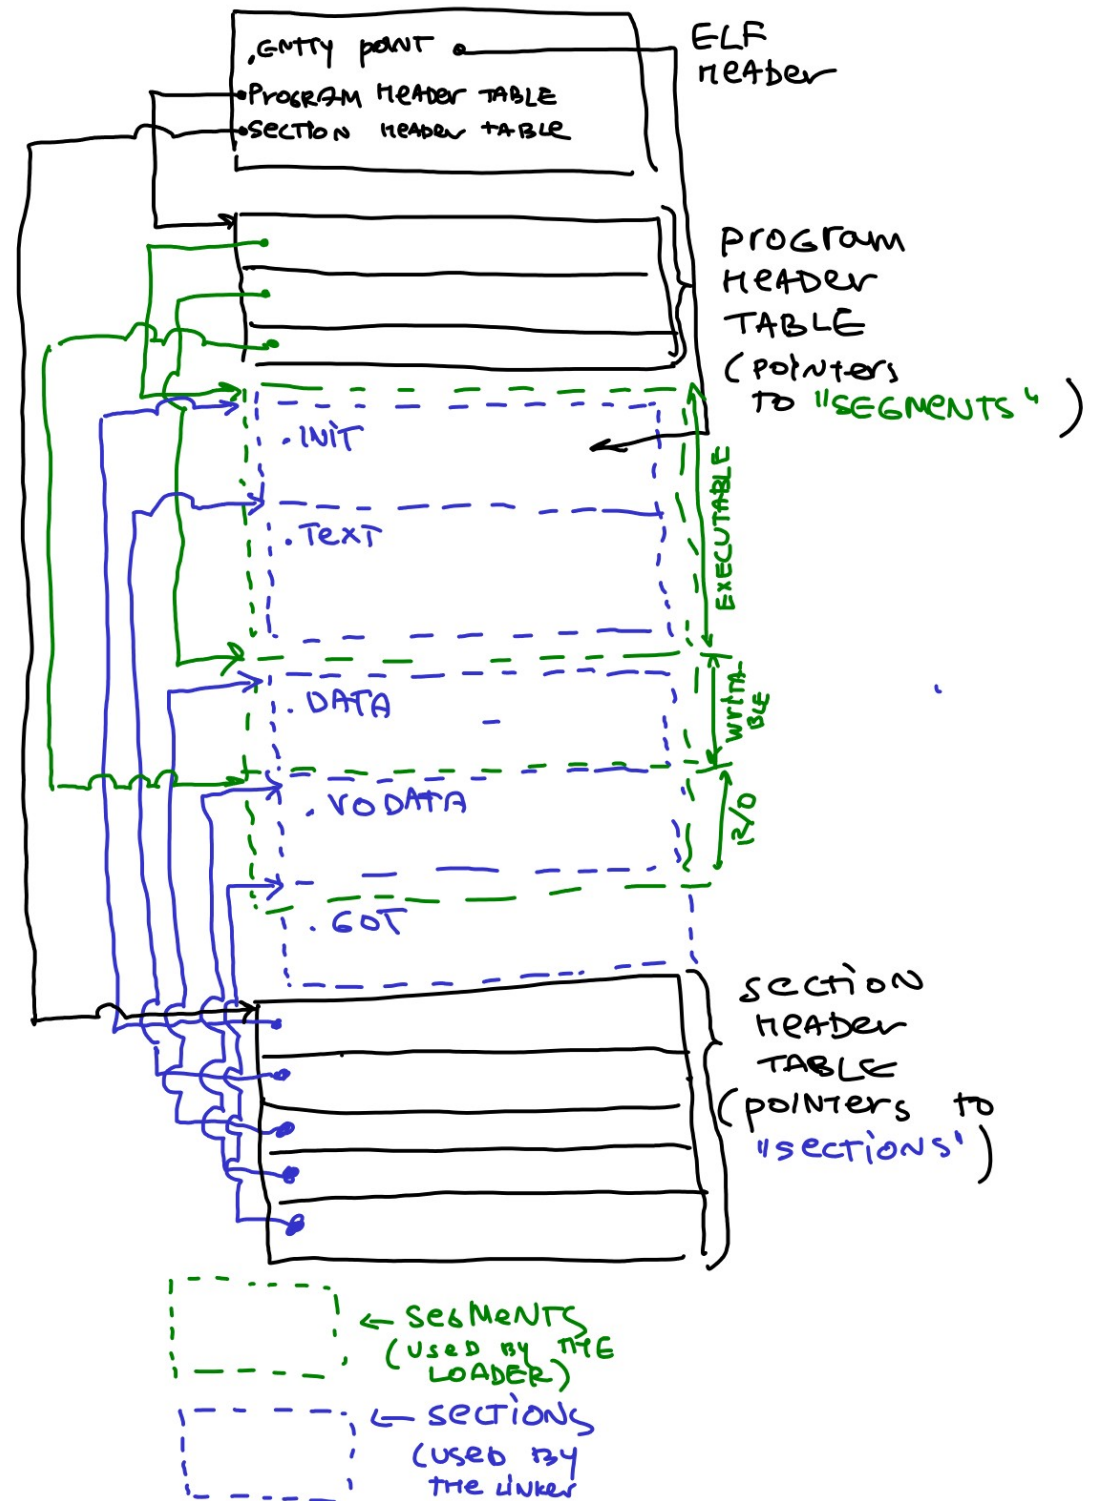 .ENTTY POINT
ELF
HEADER
PROGRAM HEADER TABLE
SECTION HEADER TABLE
PROGRAM
HEADER
TABLE
(POINTERS
TO "SEGMENTS")
.INIT
.TEXT
EXECUTABLE
.DATA
WRITA-
BLE
.RODATA
R/O
.GOT
SECTION
HEADER
TABLE
(POINTERS TO
"SECTIONS")
← SEGMENTS
(USED BY THE
LOADER)
← SECTIONS
(USED BY
THE LINKER